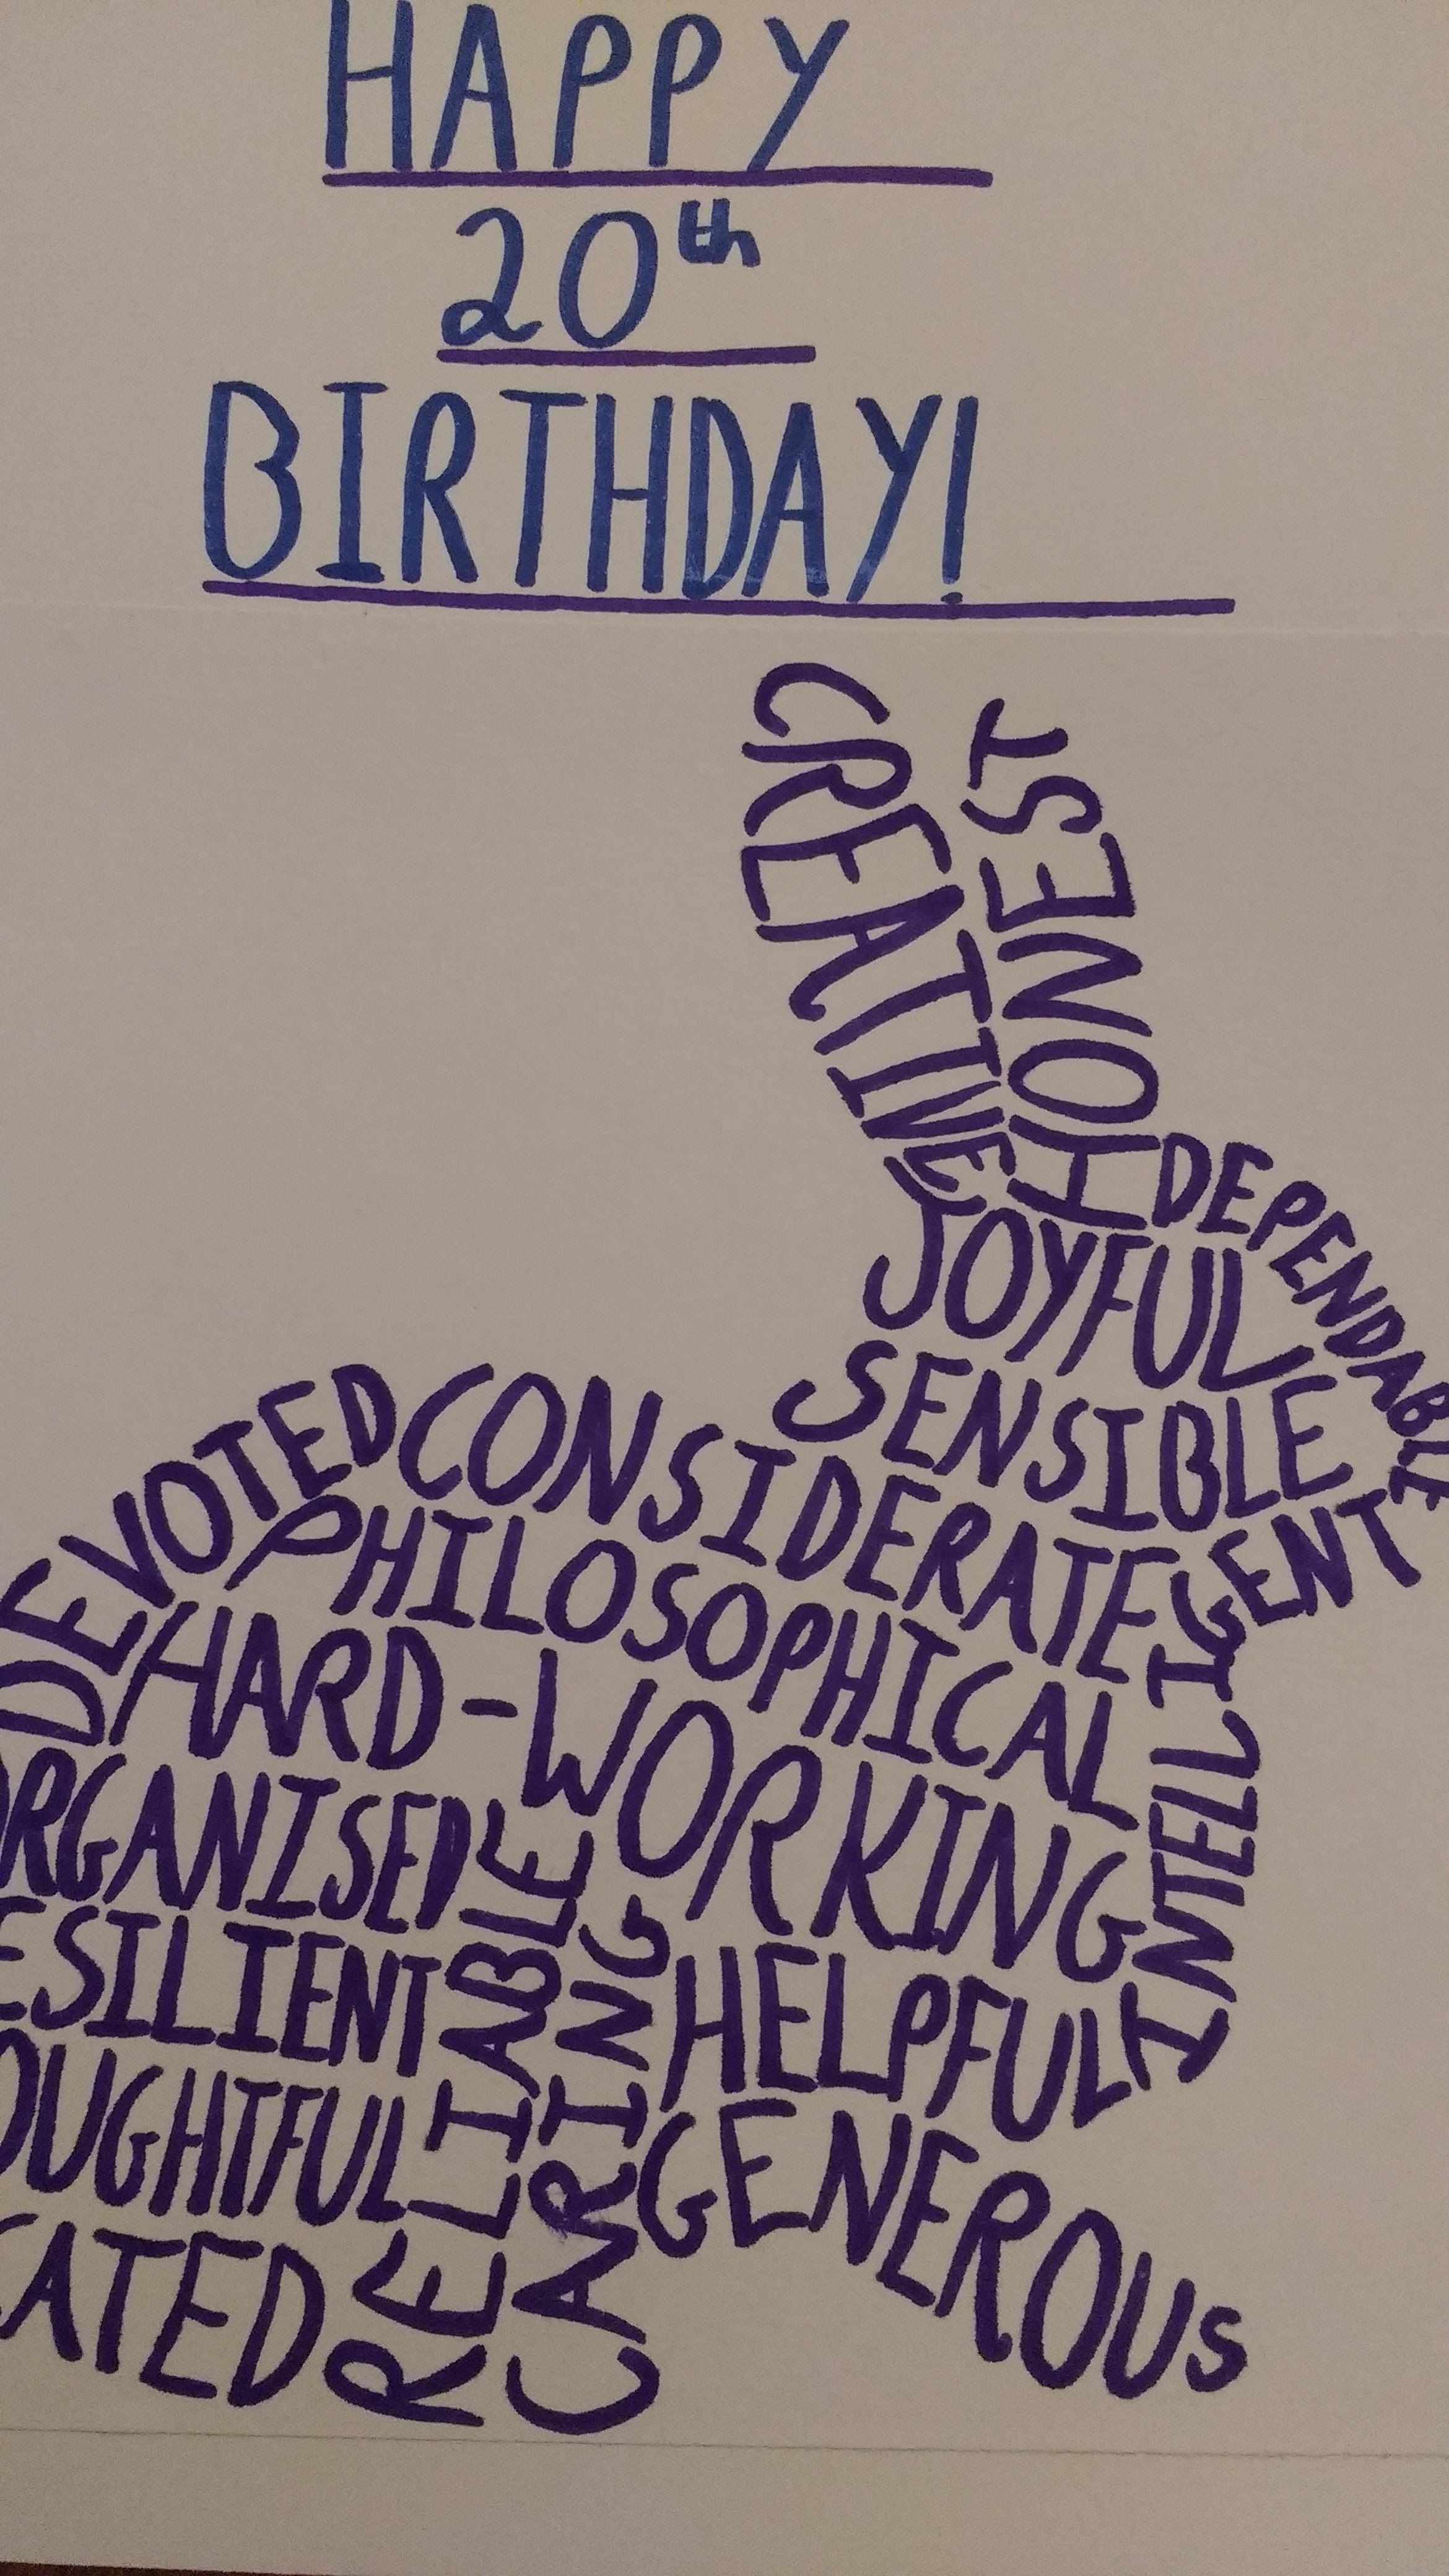 HAPPY
20th
BIRTHDAY!
CREATIVE
HONEST
DEPENDABLE
JOYFUL
SENSIBLE
DEVOTED
CONSIDERATE
PHILOSOPHICAL
INTELLIGENT
HARD-WORKING
RGANISED
RELIABLE
CARING
ESILIENT
HELPFUL
OUGHTFUL
GENEROUS
CATED